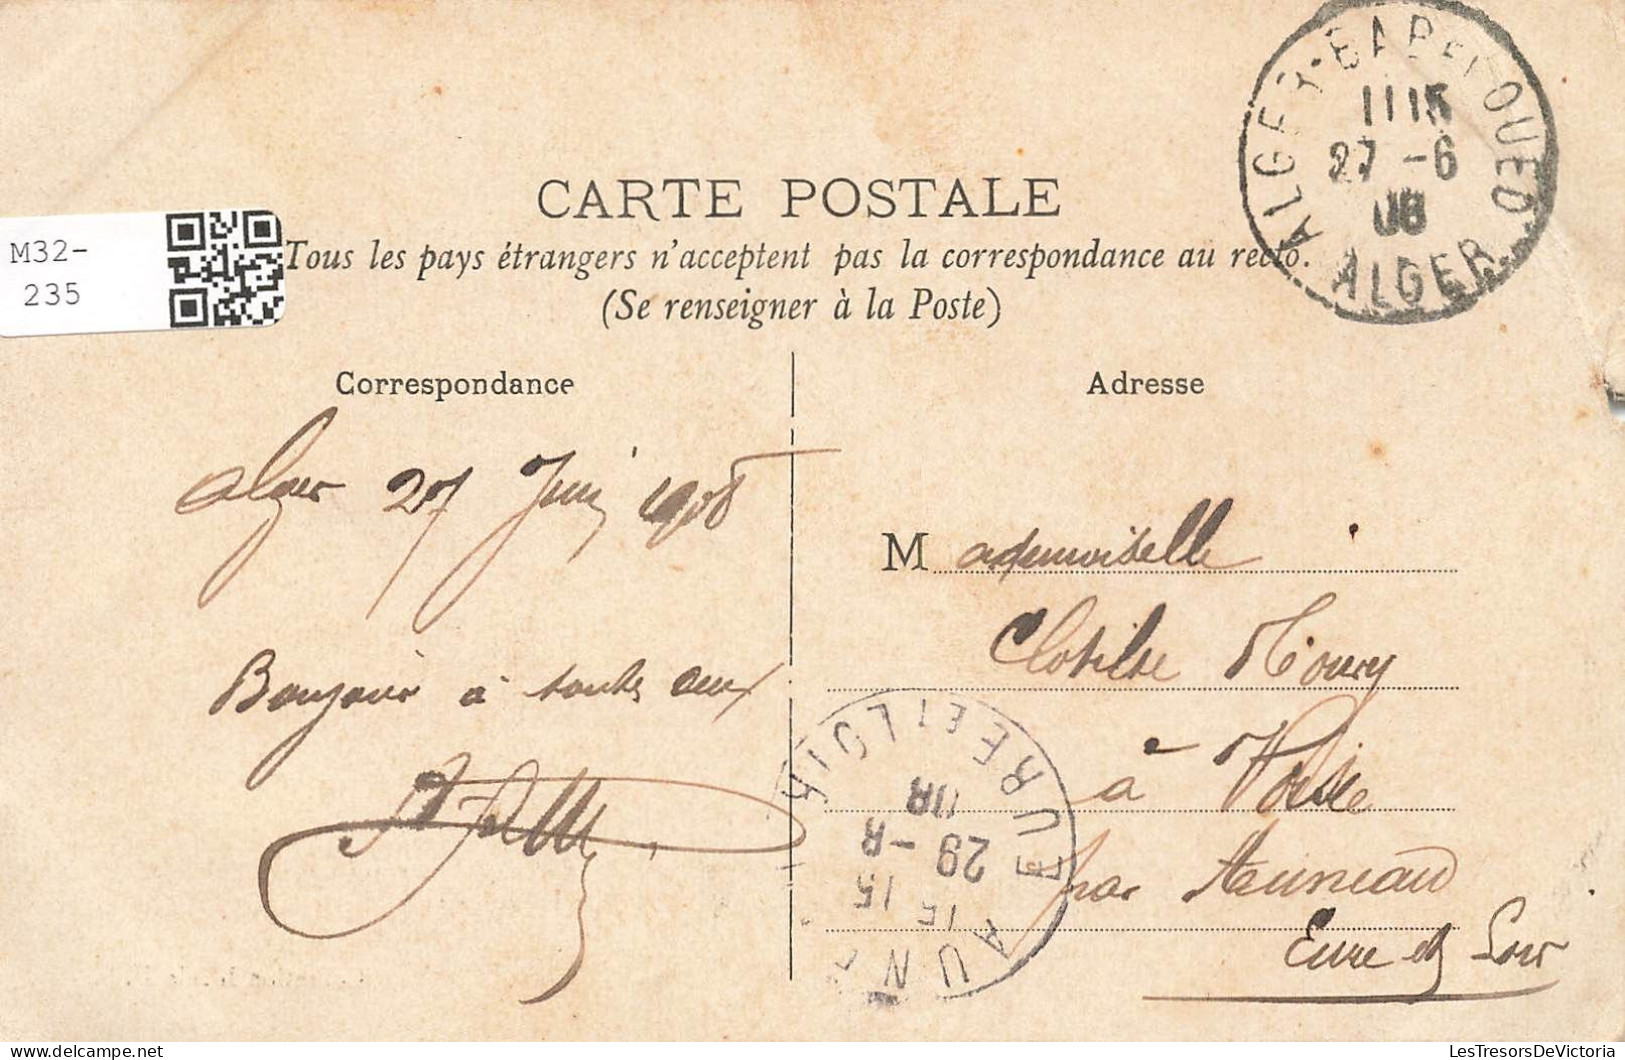 CARTE POSTALE
Tous les pays étrangers n'acceptent pas la correspondance au recto.
(Se renseigner à la Poste)
M32-
235
ALGER-BAB-EL-OUED
11 15
27 -6
08
ALGER
Correspondance
Alger 27 Juin 1908
Bonjour à toutes deux
Adresse
Mademoiselle
Clotilde Moury
à Voise
par Auneau
Eure et Loir
AUN
EURE ET LOIR
15 15
29 -6
08
LesTresorsDeVictoria